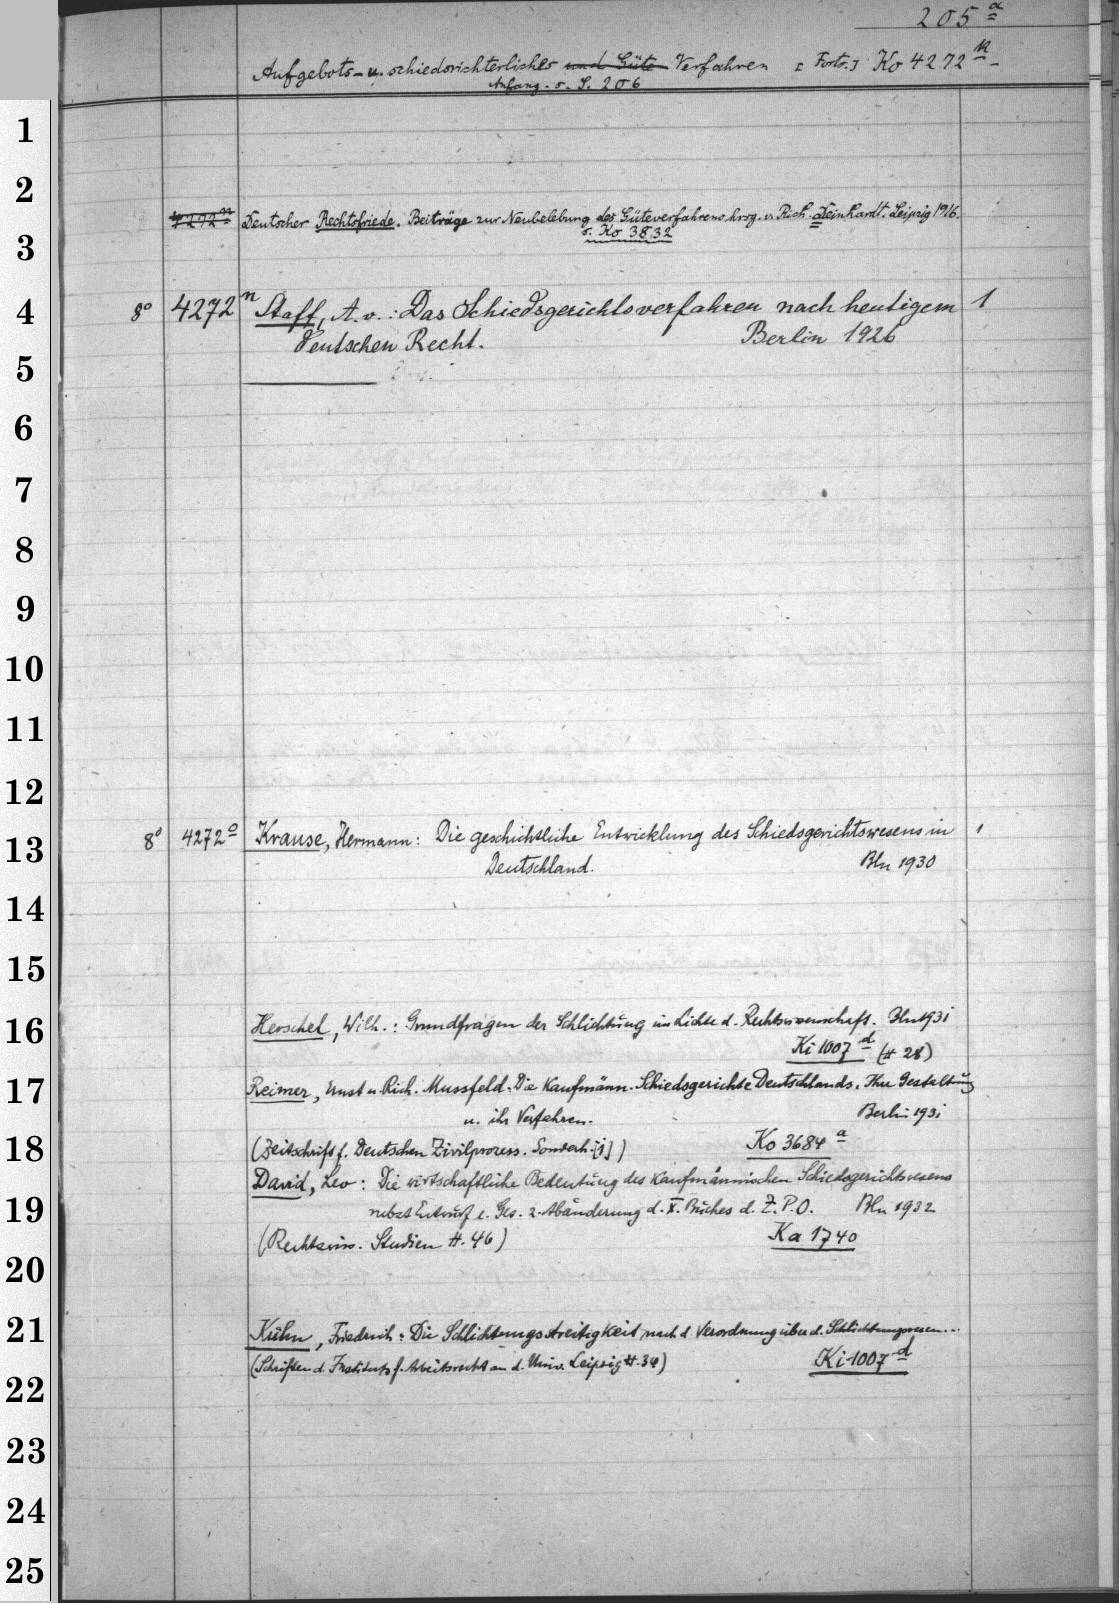 205 a
Aufgebots- u. schiedsrichterliches und Güte Verfahren [Forts.] Ko 4272 n
Anfang s. S. 206
1
2
4272 n Deutscher Rechtsfriede. Beiträge zur Neubelebung des Güteverfahrens hrsg. v. Rich. Deinhardt. Leipzig 1916.
s. Ko 3832
3
4 8° 4272 n Staff, A. v.: Das Schiedsgerichtsverfahren nach heutigem 1
deutschen Recht. Berlin 1926
5
6
7
8
9
10
11
12
13 8° 4272 o Krause, Hermann: Die geschichtliche Entwicklung des Schiedsgerichtswesens in 1
Deutschland. Bln 1930
14
15
16 Herschel, Wilh.: Grundfragen der Schlichtung im Lichte d. Rechtswissenschaft. Bln 1931
Ki 1007 d (H 28)
17 Reimer, Ernst u. Rich. Mussfeld. Die Kaufmänn. Schiedsgerichte Deutschlands. Ihre Gestaltung
u. ihr Verfahren. Berlin 1931
18 (Zeitschrift f. Deutschen Zivilprozess. Sonderh. [1]) Ko 3684 a
David, Leo: Die wirtschaftliche Bedeutung des Kaufmännischen Schiedsgerichtswesens
19 nebst Entwurf e. Ges. z. Abänderung d. X. Buches d. Z.P.O. Bln 1932
(Rechtswiss. Studien H. 46) Ka 1740
20
21 Kühn, Friedrich: Die Schlichtungsstreitigkeit nach d. Verordnung über d. Schlichtungswesen...
(Schriften d. Instituts f. Arbeitsrecht an d. Univ. Leipzig H. 34) Ki 1007 d
22
23
24
25